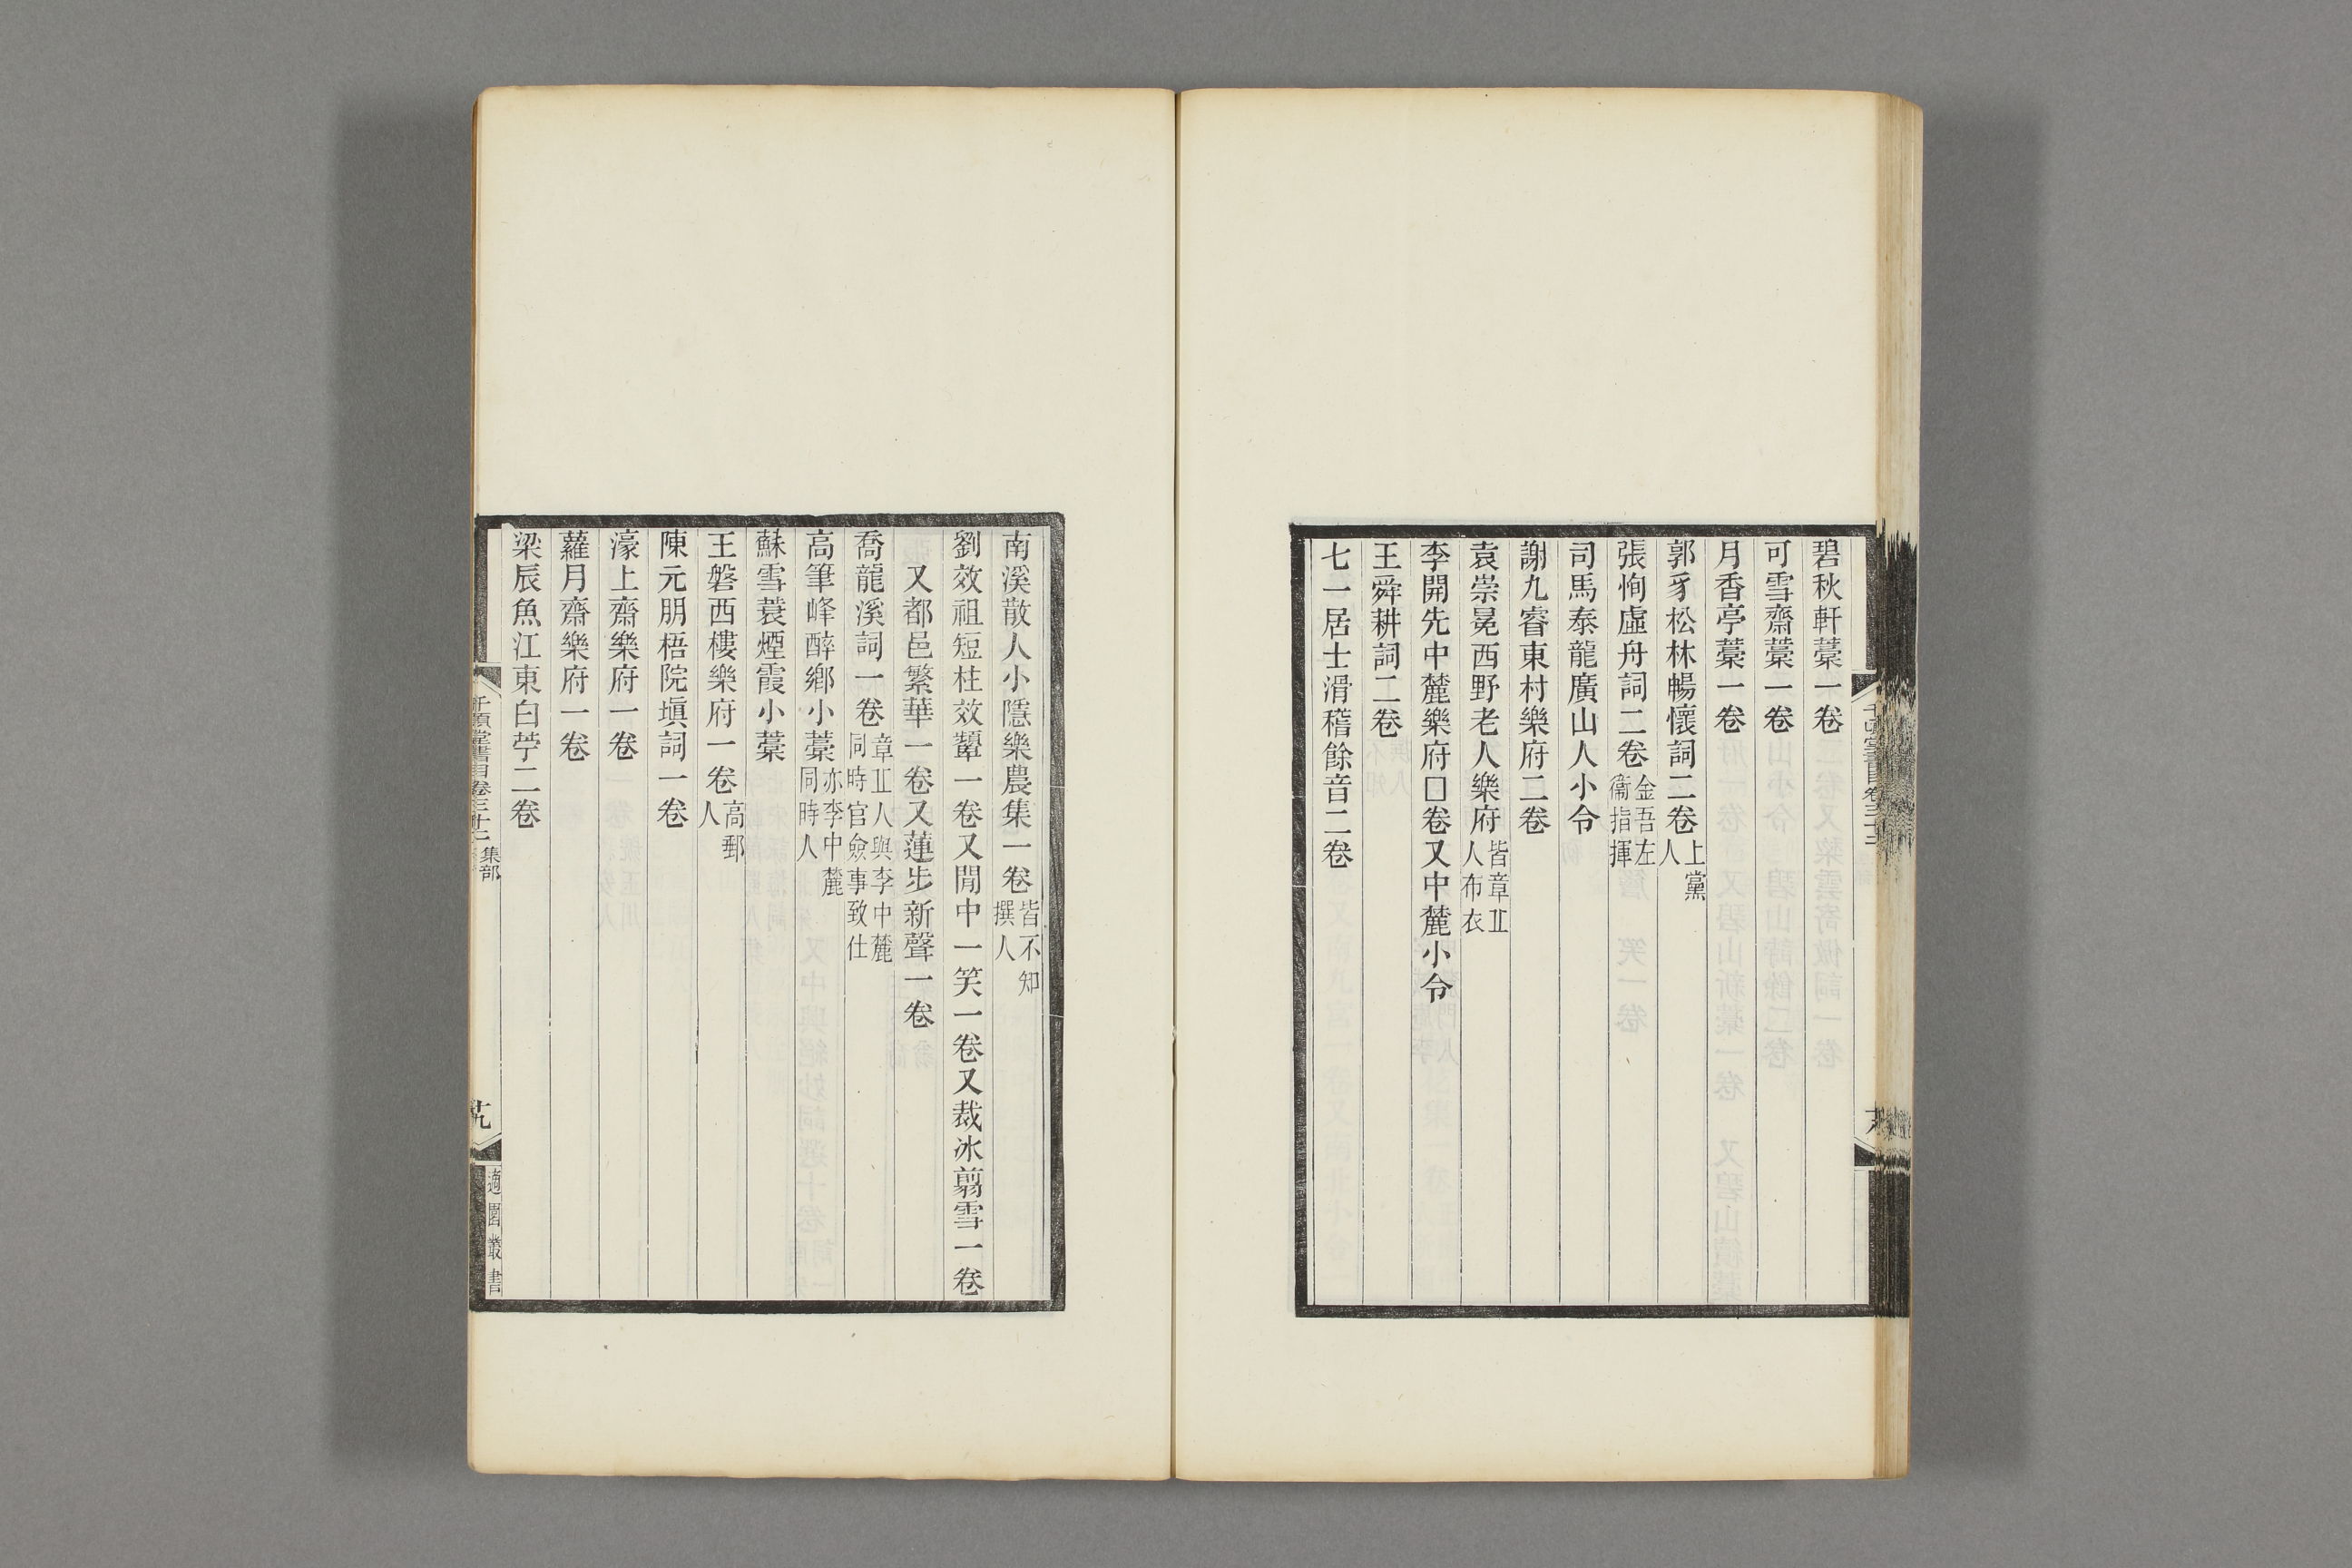 碧秋軒藁一卷
可雪齋藁一卷
月香亭藁一卷
郭豸松林暢懷詞二卷上黨人
張恂虛舟詞二卷金吾左衞指揮
司馬泰龍廣山人小令
謝九睿東村樂府二卷
袁崇冕西野老人樂府皆章丘人布衣
李開先中麓樂府□卷又中麓小令
王舜耕詞二卷
七一居士滑稽餘音二卷
南溪散人小隱樂農集一卷皆不知撰人
劉效祖短柱效顰一卷又閒中一笑一卷又裁冰翦雪一卷
又都邑繁華一卷又蓮步新聲一卷
喬龍溪詞一卷章丘人與李中麓同時官僉事致仕
高筆峰醉鄉小藁亦李中麓同時人
蘇雪蓑煙霞小藁
王磐西樓樂府一卷高郵人
陳元朋梧院塡詞一卷
濠上齋樂府一卷
蘿月齋樂府一卷
梁辰魚江東白苧二卷
千頃堂書目卷三十二 集部
九
適園叢書